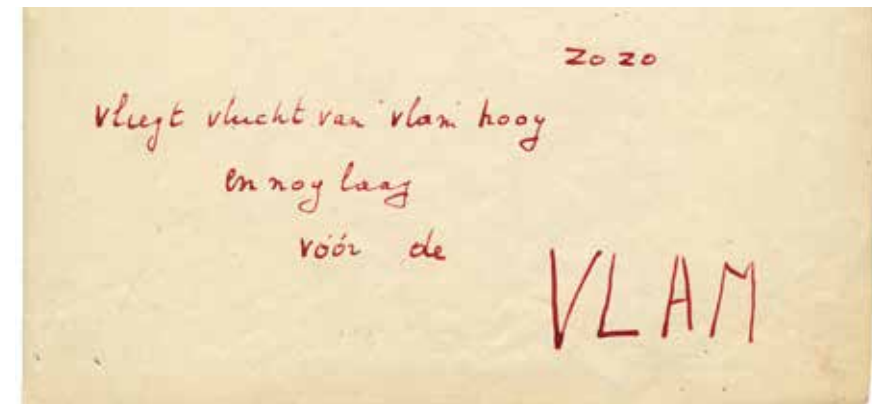 zo zo
vliegt vlucht van vlam hoog
en nog laag
vóór de
VLAM